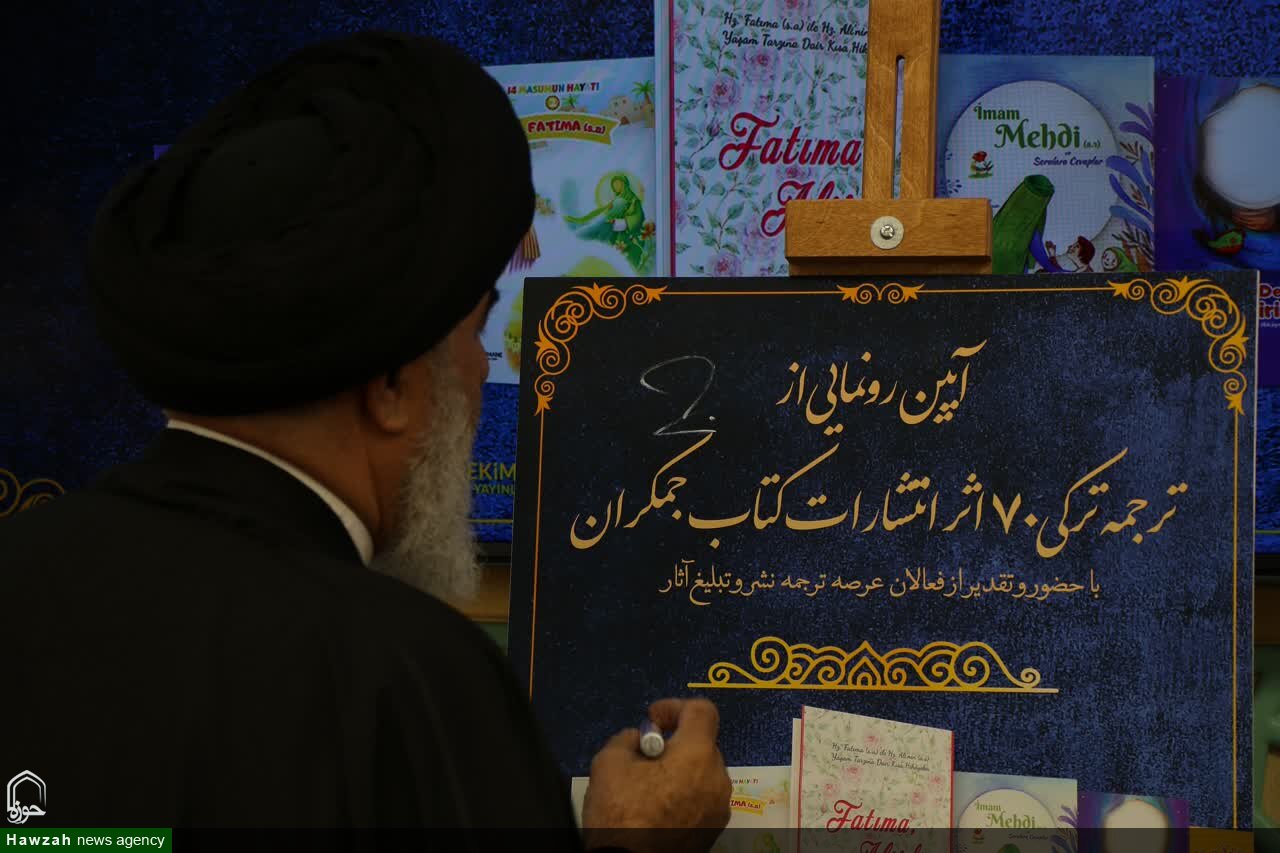 14 MASUMUN HAYATI
FATIMA (s.a)
Hz. Fatıma (s.a) ile Hz. Ali'nin
Yaşam Tarzına Dair Kısa Hik
Fatıma
İmam
Mehdi (a.s)
Sorulara Cevaplar
EKİM
YAYINL
آیین رونمایی از
ترجمه ترکی ۷۰ اثر انتشارات کتاب جمکران
با حضور و تقدیر از فعالان عرصه ترجمه نشر و تبلیغ آثار
Hz. Fatıma (s.a) ile Hz. Ali'nin (a.s)
Yaşam Tarzına Dair Kısa Hikayeler
Fatıma,
İmam
Mehdi (a.s)
Sorulara Cevaplar
حوزه
Hawzah news agency